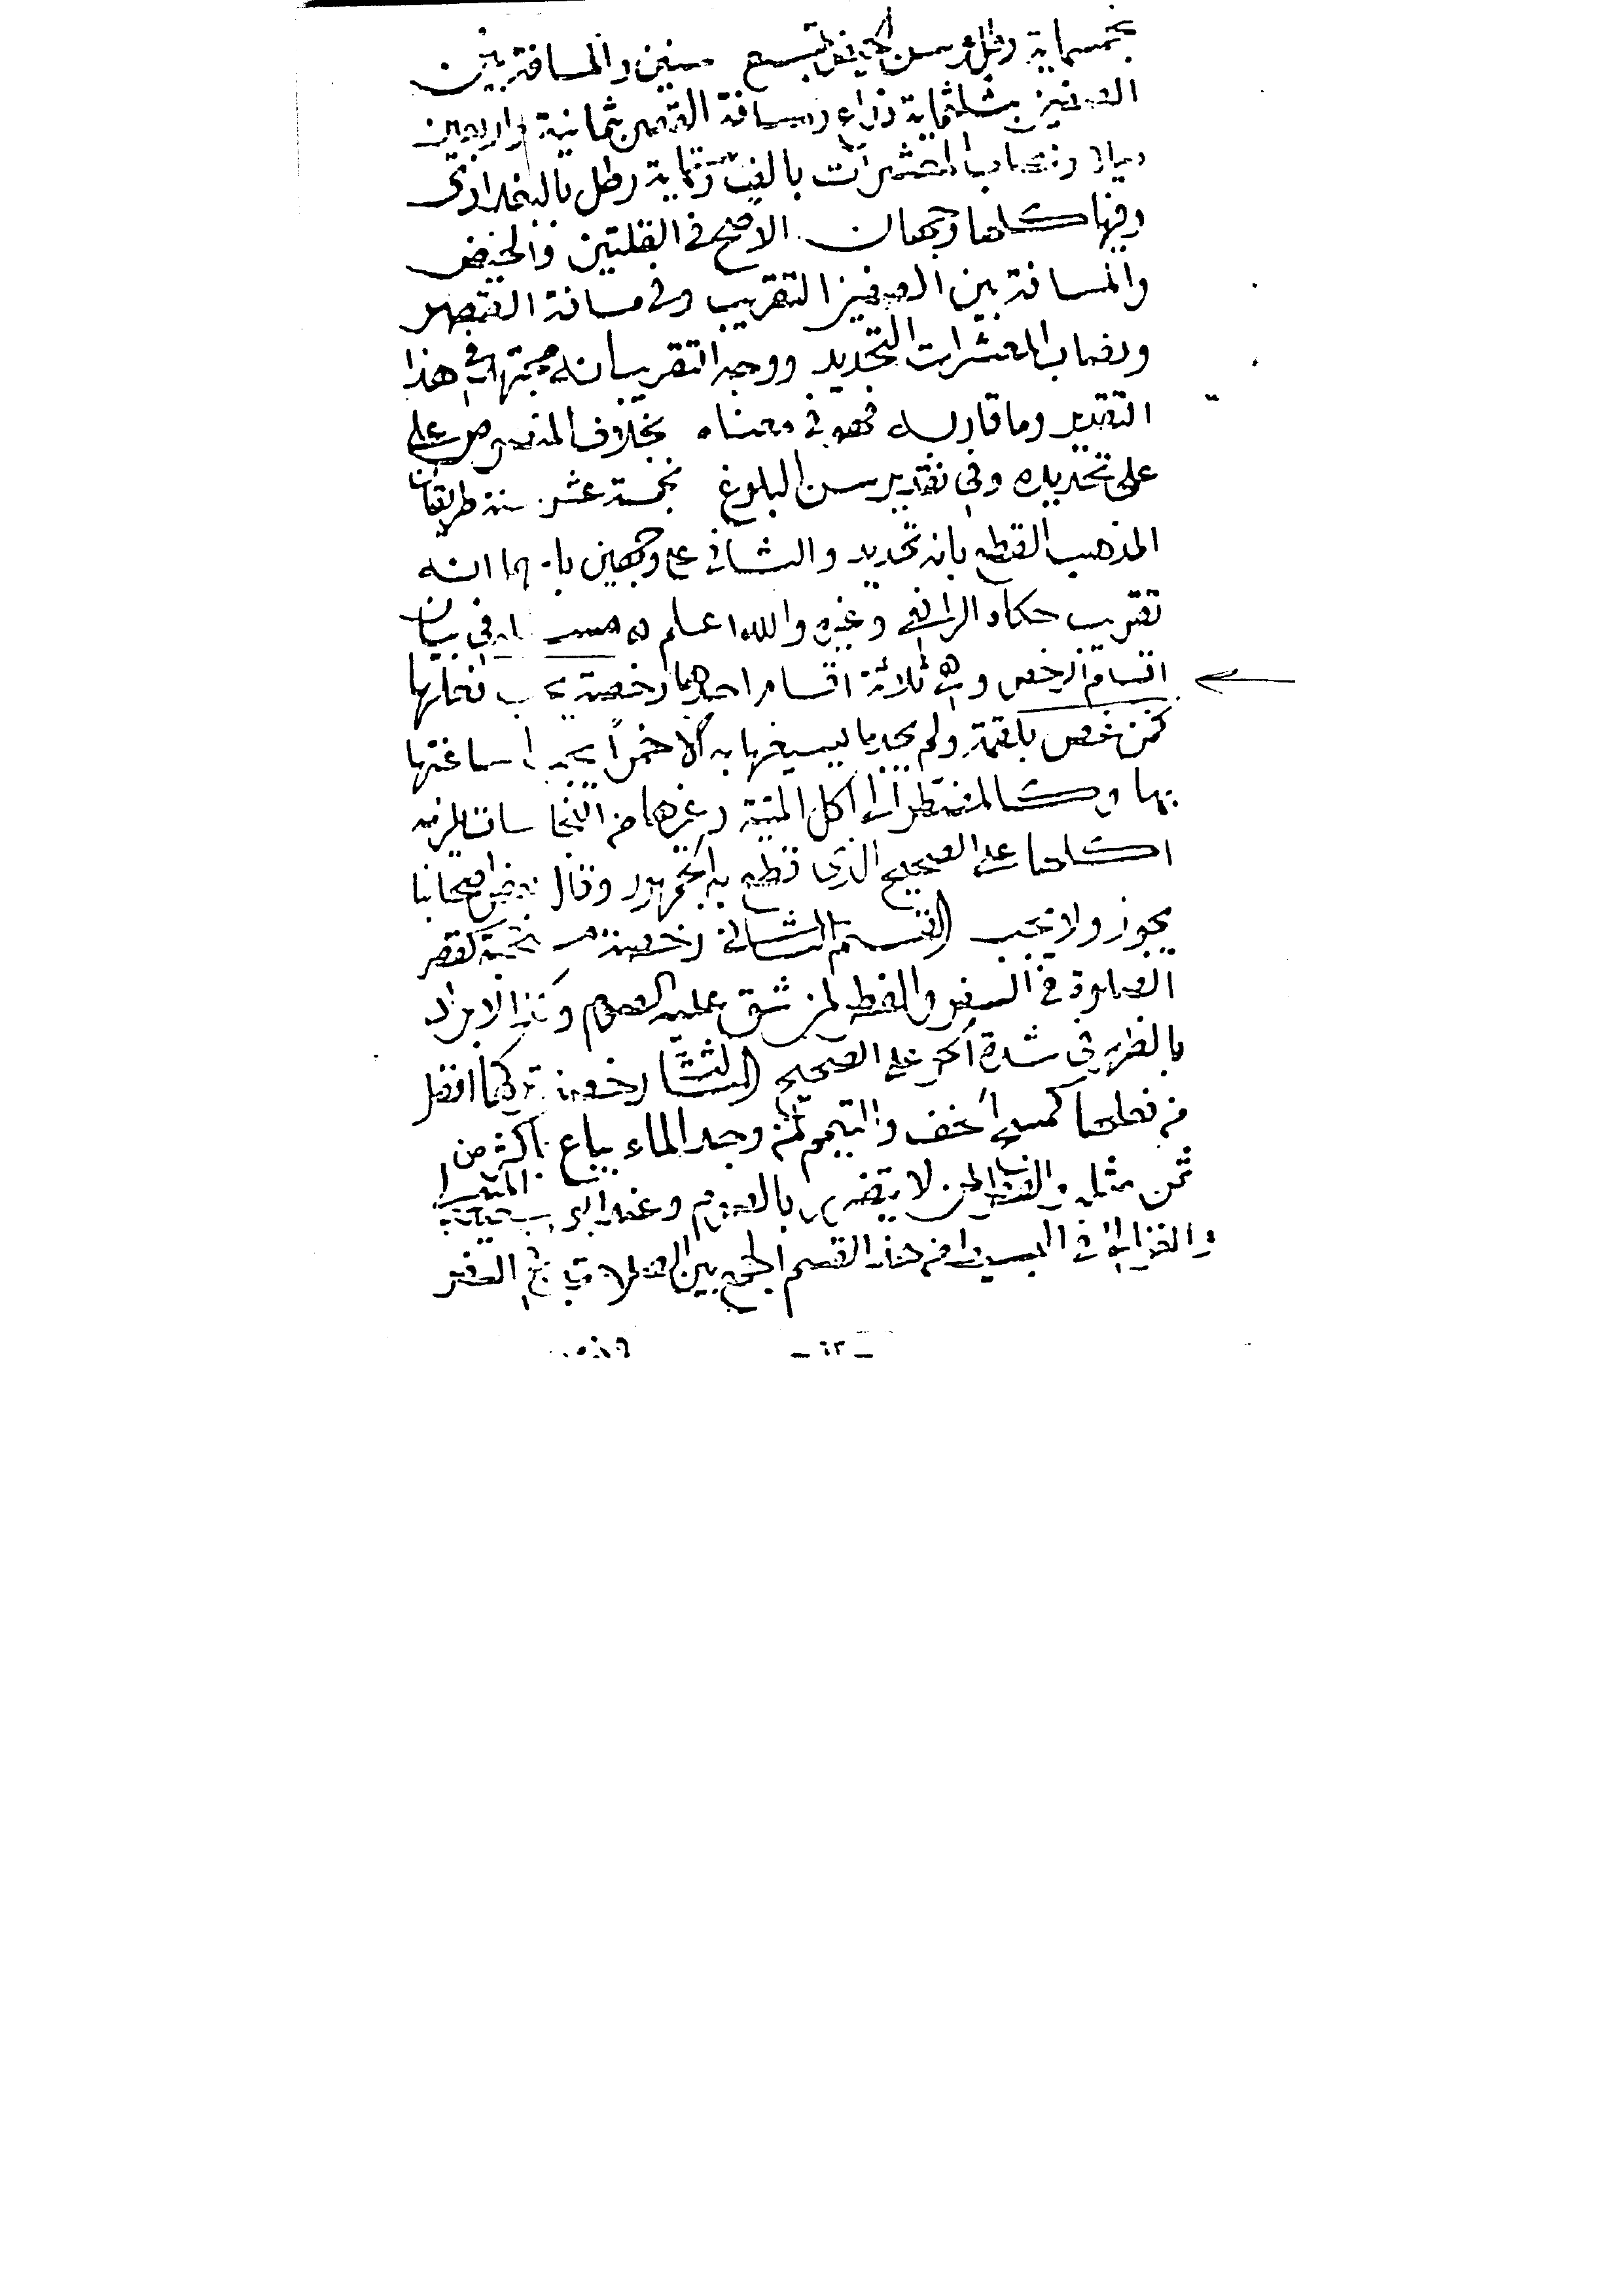 بخمسماية رطل وسن الحيض بتسع سنين والمسافة بين
الصفين بثلثماية ذراع ومسافة القصر بثمانية واربعين
ميلا ونصاب المعشرات بالف وستماية رطل بالبغدادي
وفيها كلها وجهان الاصح في القلتين والحيض
والمسافة بين الصفين التقريب وفي مسافة القصر
ونصاب المعشرات التحديد ووجه التقريب انه مجتهد في هذا
التقدير وما قاربه فهو في معناه بخلاف المنصوص على
على تحديده وفي تقدير سن البلوغ بخمسة عشر سنة طريقان
المذهب القطع بانه تحديد والثاني على وجهين انه
تقريب حكاه الرافعي وغيره والله اعلم في بيان
اقسام الرخص وهي ثلاثة اقسام احدهما رخصة يجب فعلها
كمن غص بلقمة ولم يجد ما يسيغها به الا خمرا يجب اساغتها
بها وكالمضطر الى اكل الميتة وغيرها من النجاسات يلزمه
اكلها على الصحيح الذي قطع به الجمهور وقال بعض اصحابنا
يجوز ولا يجب القسم الثاني رخصة مستحبة كقصر
الصلوة في السفر والفطر لمن شق عليه الصوم وكذا الابراد
بالظهر في شدة الحر على الصحيح الثالث رخصة تركها افضل
من فعلها كمسح الخف والتيمم لمن وجد الماء يباع باكثر من
ثمن مثله والفطر لمن لا يتضرر بالصوم وعد
والغزالي في البسيط من هذا القسم الجمع بين الصلاتين في السفر
- ٦٣ -